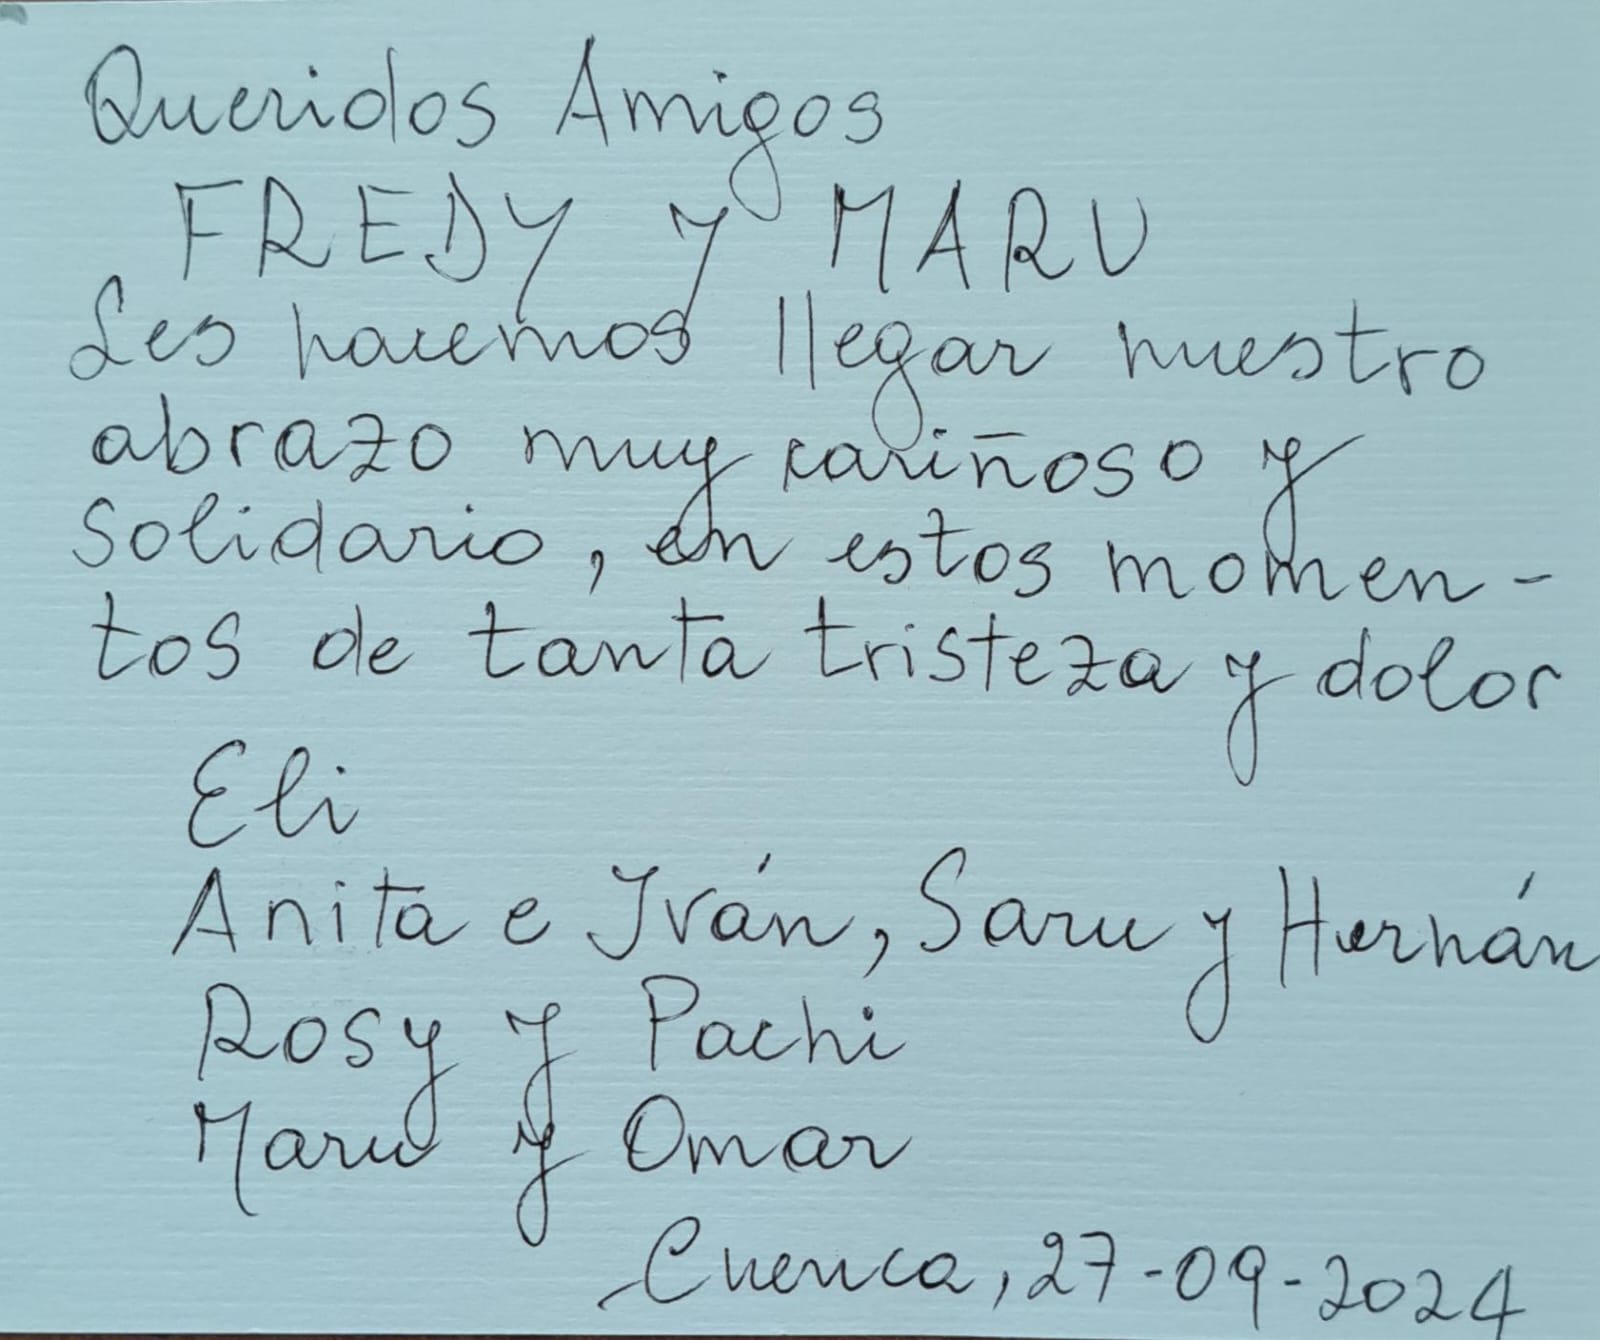 Queridos Amigos
FREDY y MARU
Les hacemos llegar nuestro
abrazo muy cariñoso y
Solidario, en estos momen-
tos de tanta tristeza y dolor
Eli
Anita e Iván, Saru y Hernán
Rosy y Pachi
Maru y Omar
Cuenca, 27-09-2024